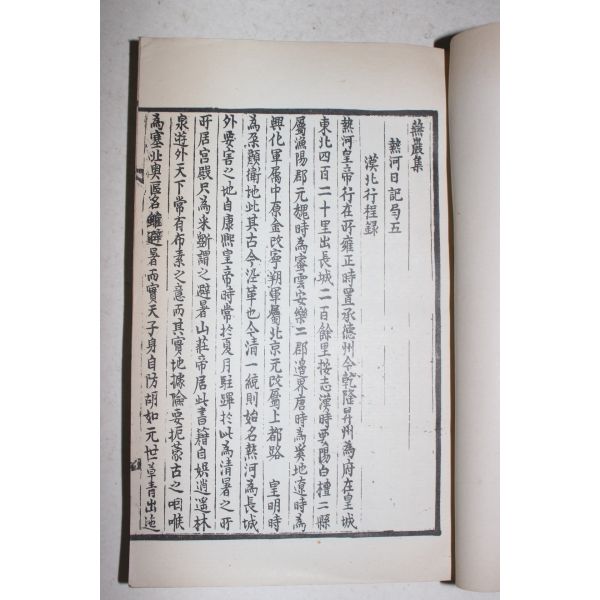 燕巖集
熱河日記局五
漠北行程録
熱河皇帝行在所雍正時置承德州今乾隆昇州為府在皇城
東北四百二十里出長城二百餘里按志漢時要陽白檀二縣
屬漁陽郡元魏時為密雲安樂二郡邊界唐時為奚地遼時為
興化軍屬中原金改寧朔軍屬北京元改屬上都路 皇明時
為朶顏衛地此其古今沿革也今清一統則始名熱河為長城
外要害之地自康熙皇帝時常於夏月駐蹕於此為清暑之所
所居宮殿尺為采斲謂之避暑山莊帝居此書籍自娛逍遥林
泉遊外天下常有布素之意而其實地據險要扼蒙古之咽喉
為塞北奧區名雖避暑而實天子身自防胡如元世草青出迤